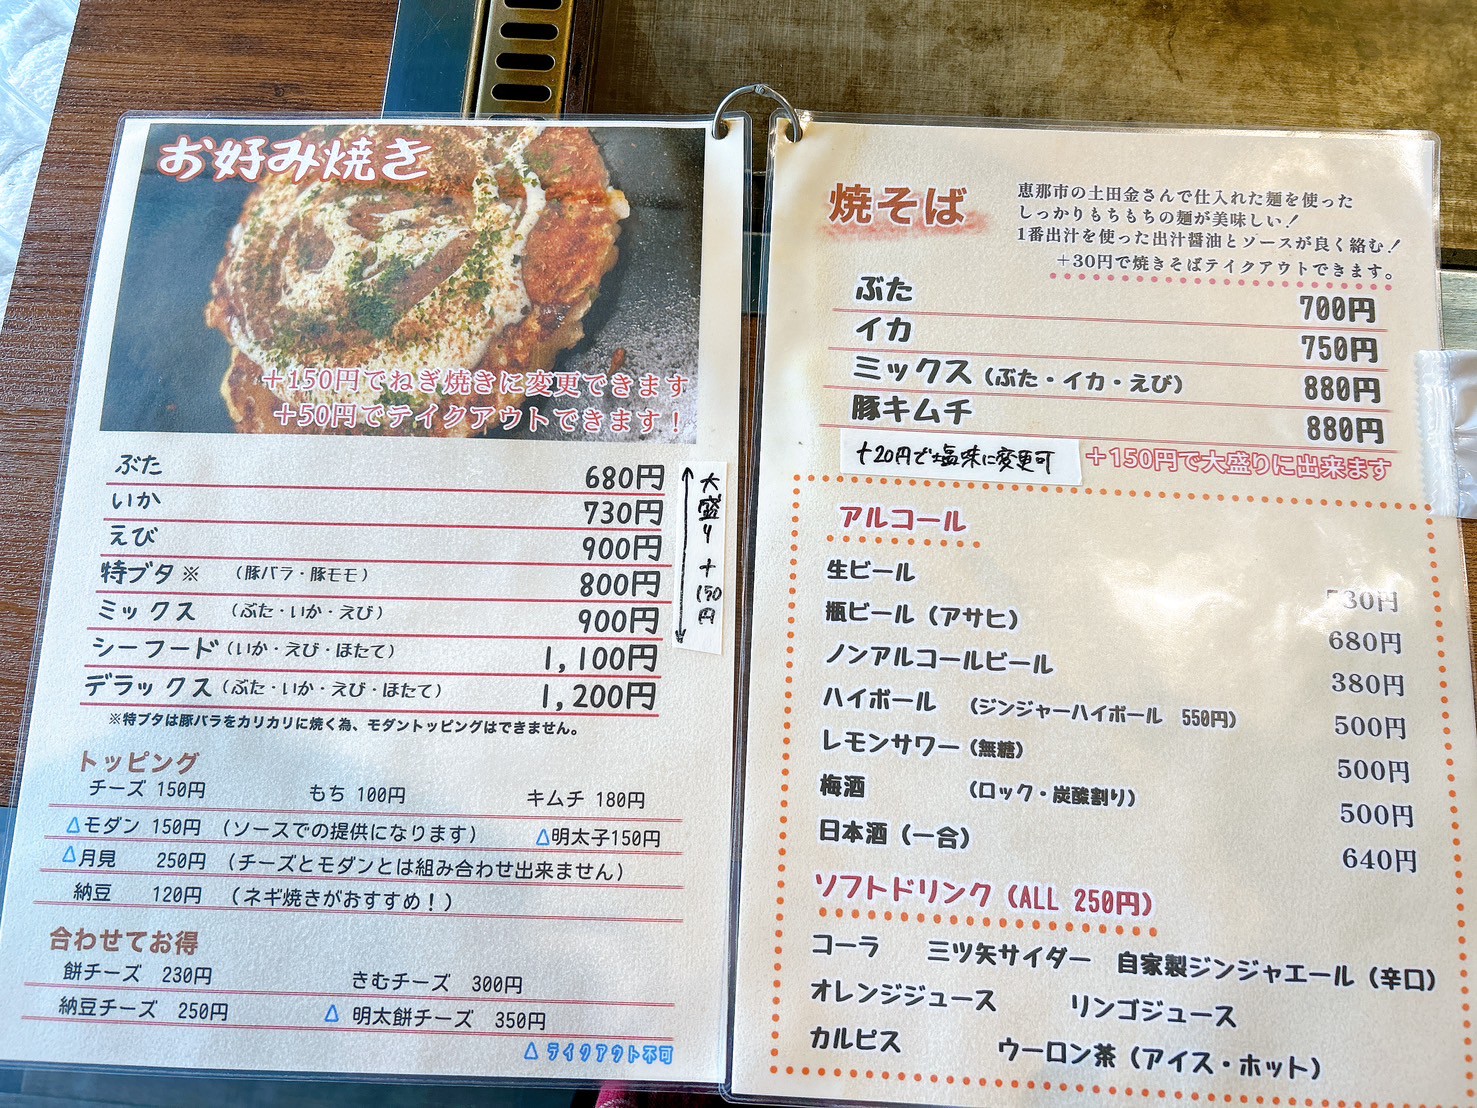 お好み焼き
＋150円でねぎ焼きに変更できます
＋50円でテイクアウトできます！
ぶた 680円
いか 730円
えび 900円
特ブタ※ （豚バラ・豚モモ） 800円
ミックス （ぶた・いか・えび） 900円
シーフード（いか・えび・ほたて） 1,100円
デラックス（ぶた・いか・えび・ほたて） 1,200円
大盛り＋150円
※特ブタは豚バラをカリカリに焼く為、モダントッピングはできません。
トッピング
チーズ 150円 もち 100円 キムチ 180円
△モダン 150円 （ソースでの提供になります） △明太子150円
△月見 250円 （チーズとモダンとは組み合わせ出来ません）
納豆 120円 （ネギ焼きがおすすめ！）
合わせてお得
餅チーズ 230円 きむチーズ 300円
納豆チーズ 250円 △ 明太餅チーズ 350円
△ テイクアウト不可
焼そば
恵那市の土田金さんで仕入れた麺を使った
しっかりもちもちの麺が美味しい！
1番出汁を使った出汁醤油とソースが良く絡む！
＋30円で焼きそばテイクアウトできます。
ぶた 700円
イカ 750円
ミックス（ぶた・イカ・えび） 880円
豚キムチ 880円
＋20円で塩味に変更可
＋150円で大盛りに出来ます
アルコール
生ビール 530円
瓶ビール（アサヒ） 680円
ノンアルコールビール 380円
ハイボール （ジンジャーハイボール 550円） 500円
レモンサワー（無糖） 500円
梅酒 （ロック・炭酸割り） 500円
日本酒（一合） 640円
ソフトドリンク（ALL 250円）
コーラ 三ツ矢サイダー 自家製ジンジャエール（辛口）
オレンジジュース リンゴジュース
カルピス ウーロン茶（アイス・ホット）